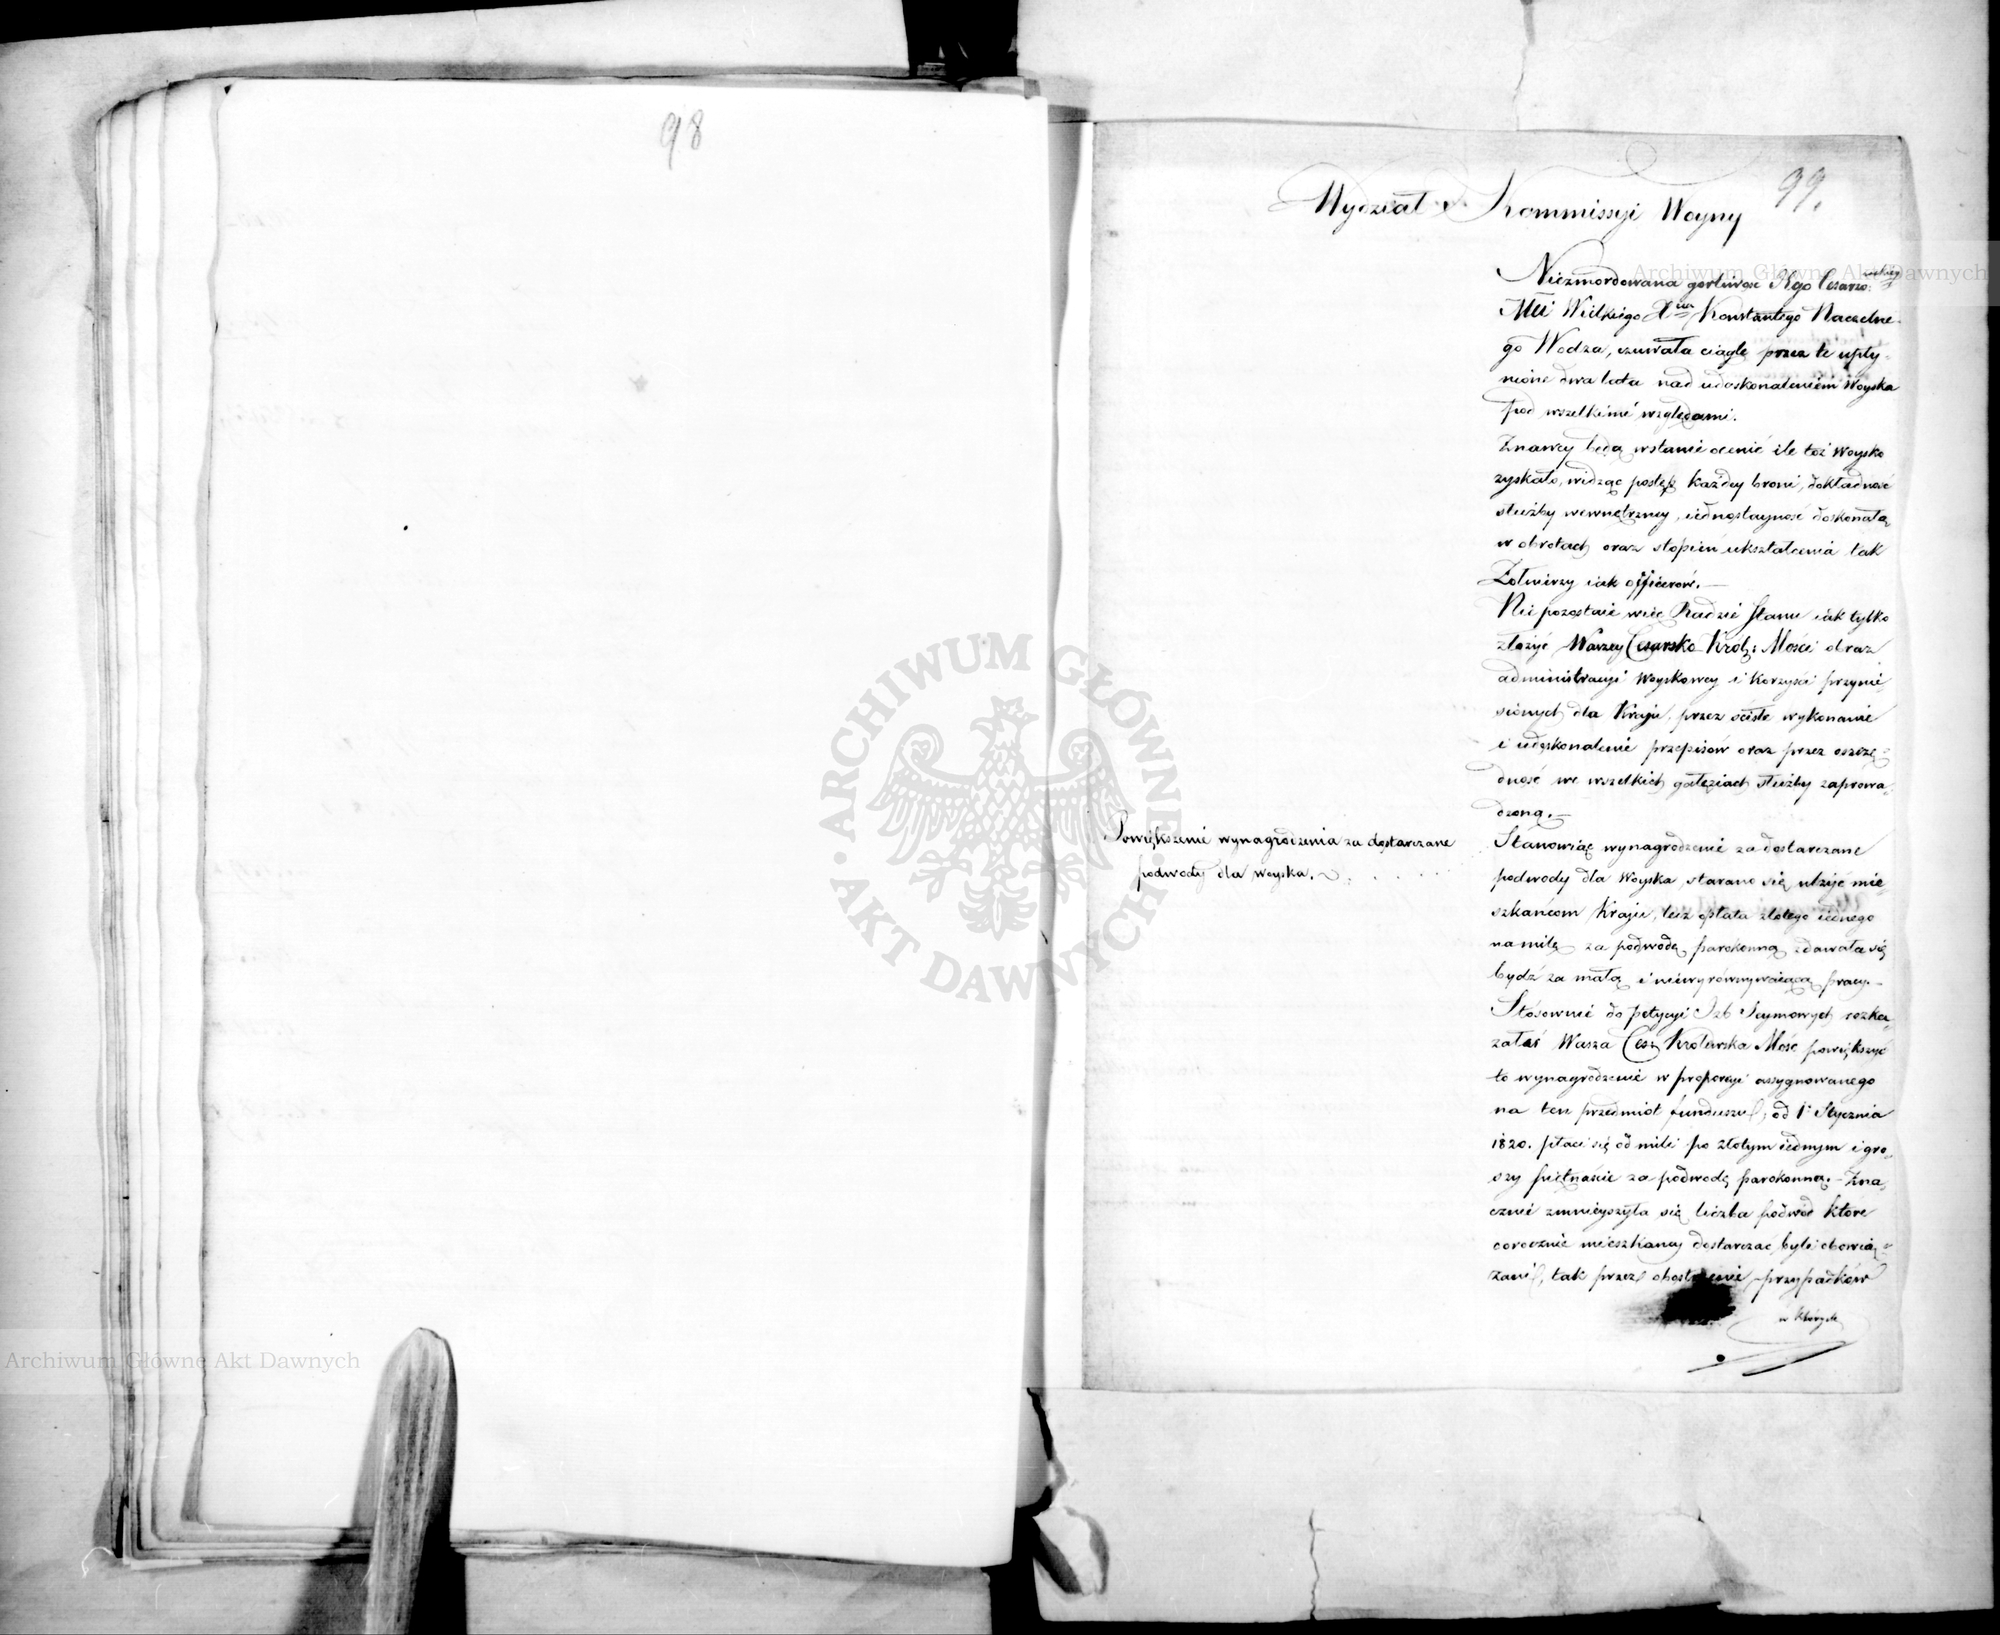 98
99.
Wydział Kommissyi Woyny
Niezmordowana gorliwość Jego Cesarzo:
MCi Wielkiego Xcia Konstantego Naczelne-
go Wodza, czuwała ciągle przez te upły-
nione dwa lata nad udoskonaleniem Woyska
pod wszelkiemi względami.
Znawcy będą wstanie ocenić ile toż Woysko
zyskało, widząc postęp każdey broni, dokładność
służby wewnętrzney, iednostayność doskonałą
w obrotach oraz stopień ukształcenia tak
Żołnierzy iak officerów.—
Nie pozostaie więc Radzie Stanu iak tylko
złożyć Waszey Cesarsko Król: Mości obraz
administracyi Woyskowey i korzyści przynie-
sionych dla Kraju, przez ścisłe wykonanie
i udoskonalenie przepisów oraz przez oszczę-
dność we wszelkich gałęziach służby zaprowa-
dzoną.—
Powiększenie wynagrodzenia za dostarczane
podwody dla woyska.
Stanowiąc wynagrodzenie za dostarczane
podwody dla Woyska, starano się ulżyć mie-
szkańcom Kraju, lecz opłata złotego iednego
na milę za podwodę parokonną zdawała się
bydź za małą i niewyrównywaiącą pracy.—
Stósownie do petycyi Izb Seymowych rozka-
załaś Wasza Ces: Królewska Mość powiększyć
to wynagrodzenie w proporcyi assygnowanego
na ten przedmiot funduszu, od 1. Stycznia
1820. płaci się od mili po złotym iednym i gro-
szy piętnaście za podwodę parokonną.— Zna-
cznie zmnieyszyła się liczba podwod które
corocznie mieszkańcy dostarczać byli obowią-
zani, tak przez obostrzenie przypadków
w których
Archiwum Główne Akt Dawnych
Archiwum Główne Akt Dawnych
ARCHIWUM GŁÓWNE
AKT DAWNYCH